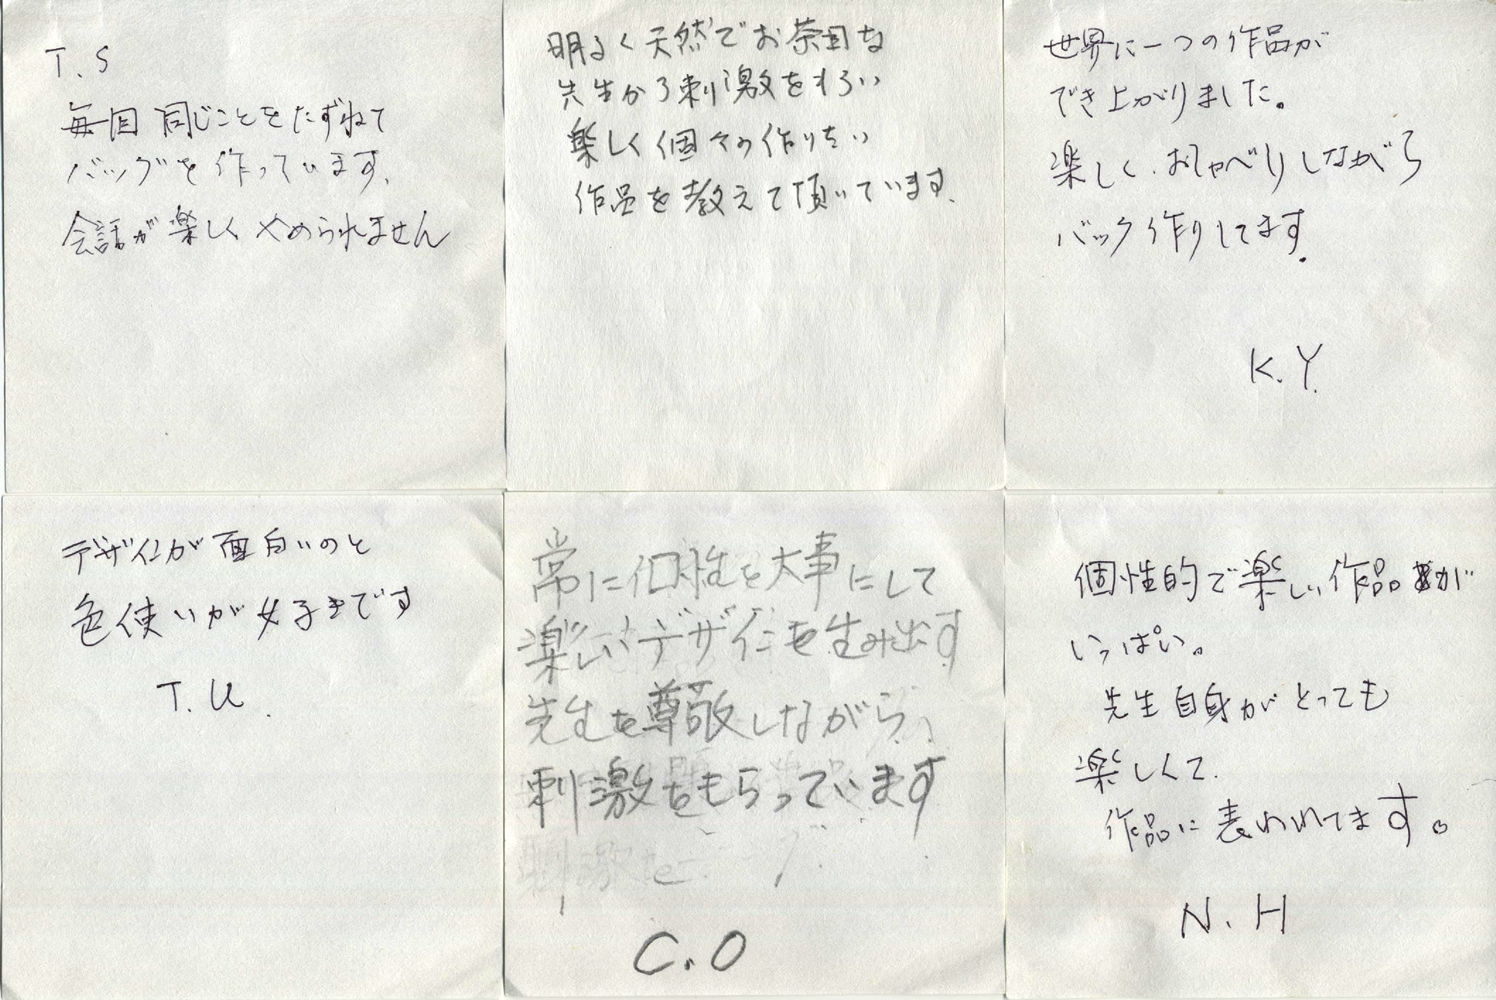 T.S
毎回同じことをたずねて
バッグを作っています。
会話が楽しくやめられません
明るく天然でお茶目な
先生から刺激をもらい
楽しく個々の作りたい
作品を教えて頂いています。
世界に一つの作品が
でき上がりました。
楽しく、おしゃべりしながら
バック作りしてます。
K.Y.
デザインが面白いのと
色使いが好きです
T.U.
常に個性を大事にして
楽しいデザインを生み出す
先生を尊敬しながら、
刺激をもらっています
C.O
個性的で楽しい作品が
いっぱい。
先生自身がとっても
楽しくて、
作品に表われてます。
N.H